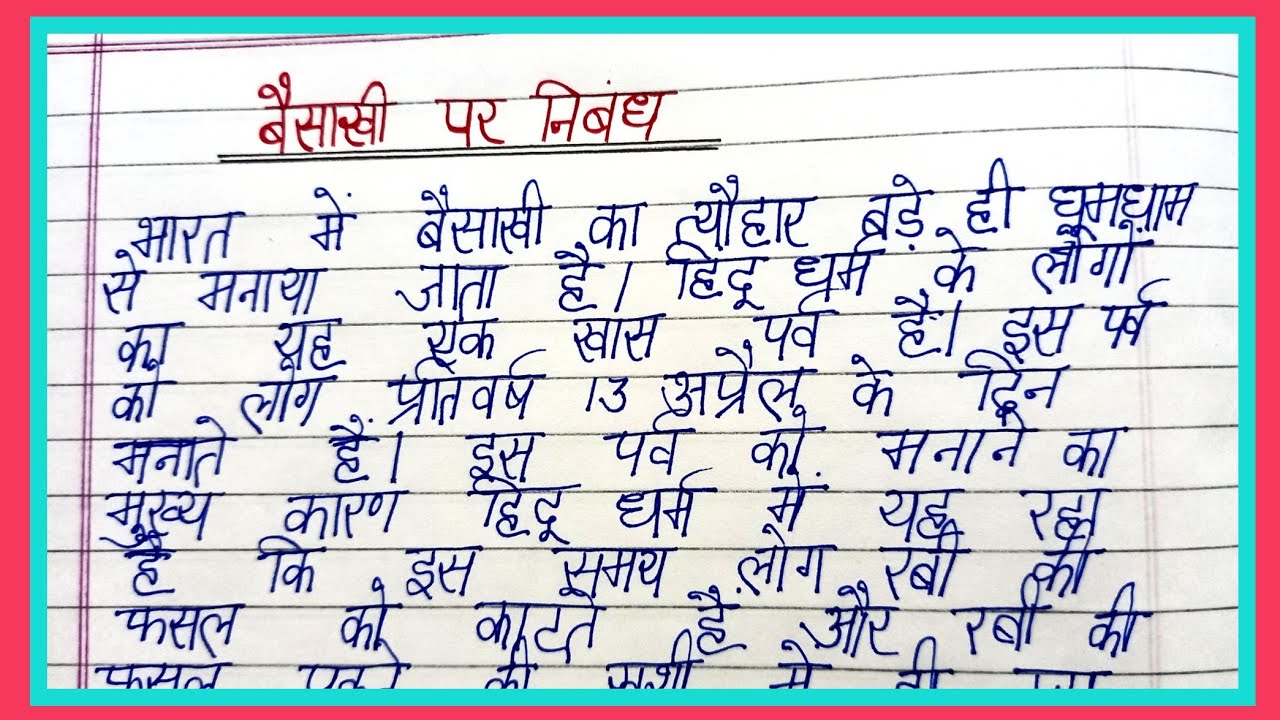 बैसाखी पर निबंध
भारत में बैसाखी का त्यौहार बड़े ही धूमधाम
से मनाया जाता है। हिंदू धर्म के लोगों
का यह एक खास पर्व है। इस पर्व
को लोग प्रतिवर्ष 13 अप्रैल के दिन
मनाते हैं। इस पर्व को मनाने का
मुख्य कारण हिंदू धर्म में यह रहा
है कि इस समय लोग रबी की
फसल को काटते है और रबी की
फसल की में ही